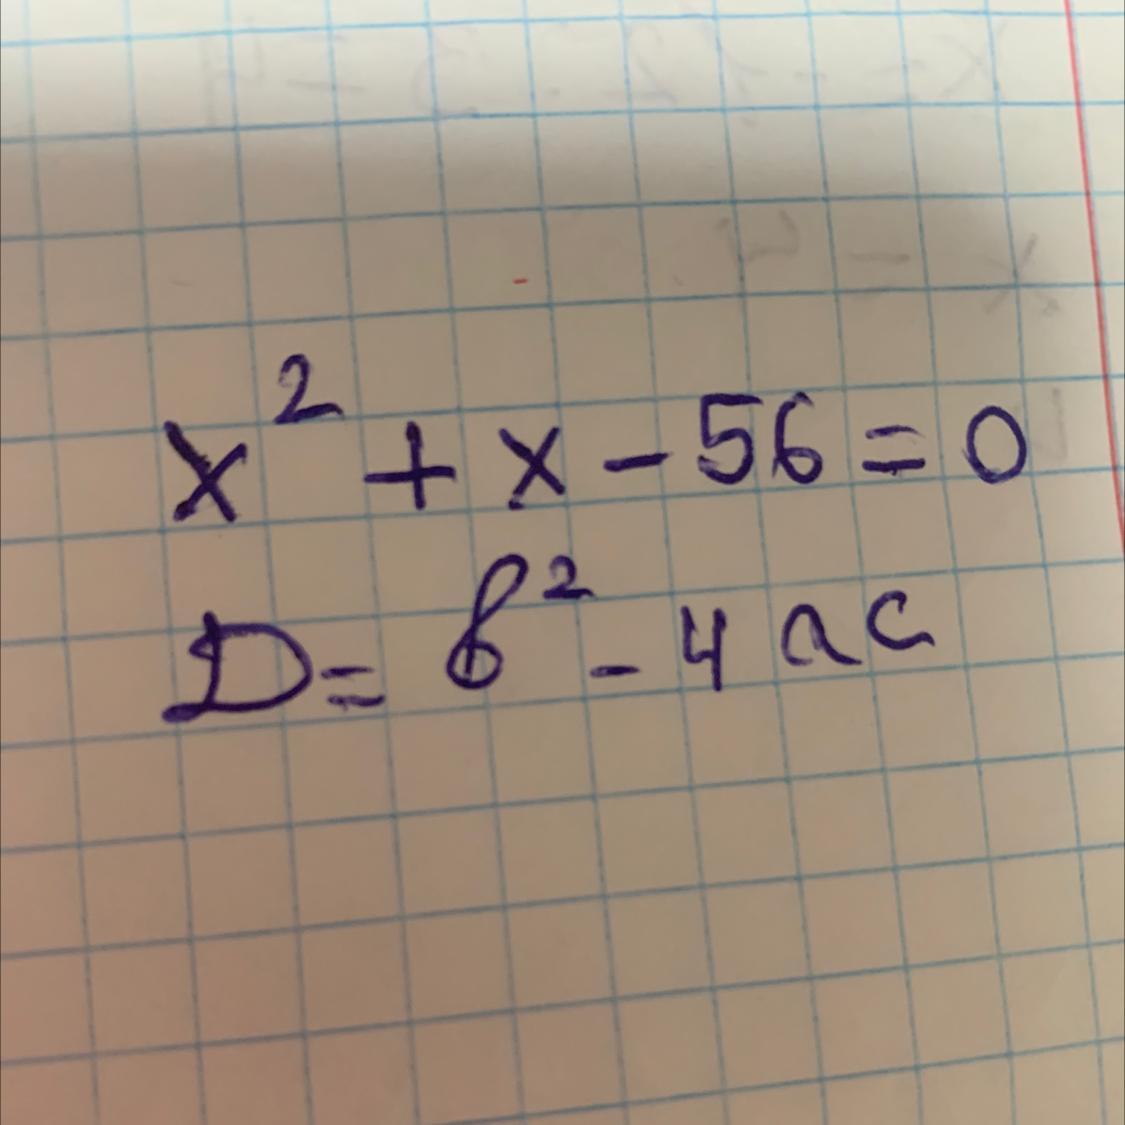 x² + x - 56 = 0
D = b² - 4ac